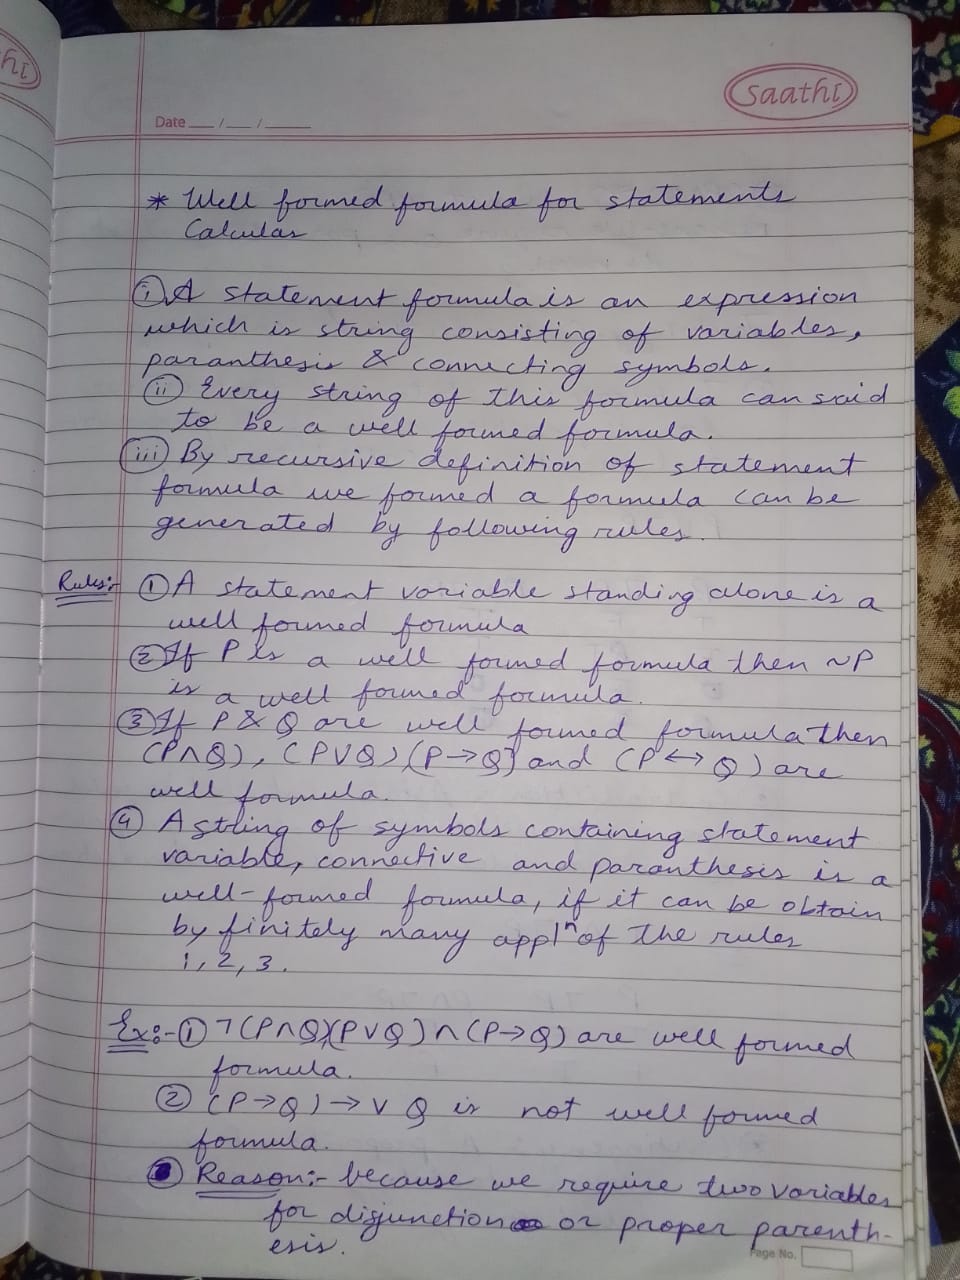 hi
Saathi
Date __/__/____
* Well formed formula for statements
Calculas
(i) A statement formula is an expression
which is string consisting of variables,
paranthesis & connecting symbols.
(ii) Every string of this formula can said
to be a well formed formula.
(iii) By recursive definition of statement
formula we formed a formula can be
generated by following rules.
Rules:- ① A statement variable standing alone is a
well formed formula
② If P is a well formed formula then ~P
is a well formed formula.
③ If P & Q are well formed formula then
(P∧Q), (P∨Q) (P→Q) and (P↔Q) are
well formula.
④ A string of symbols containing statement
variable, connective and paranthesis is a
well-formed formula, if it can be obtain
by finitely many applⁿ of the rules
1, 2, 3.
Ex:- ① ¬(P∧Q)(P∨Q)∧(P→Q) are well formed
formula.
② (P→Q)→∨Q is not well formed
formula.
Reason:- because we require two variables
for disjunction or proper parenth-
esis.
Page No.